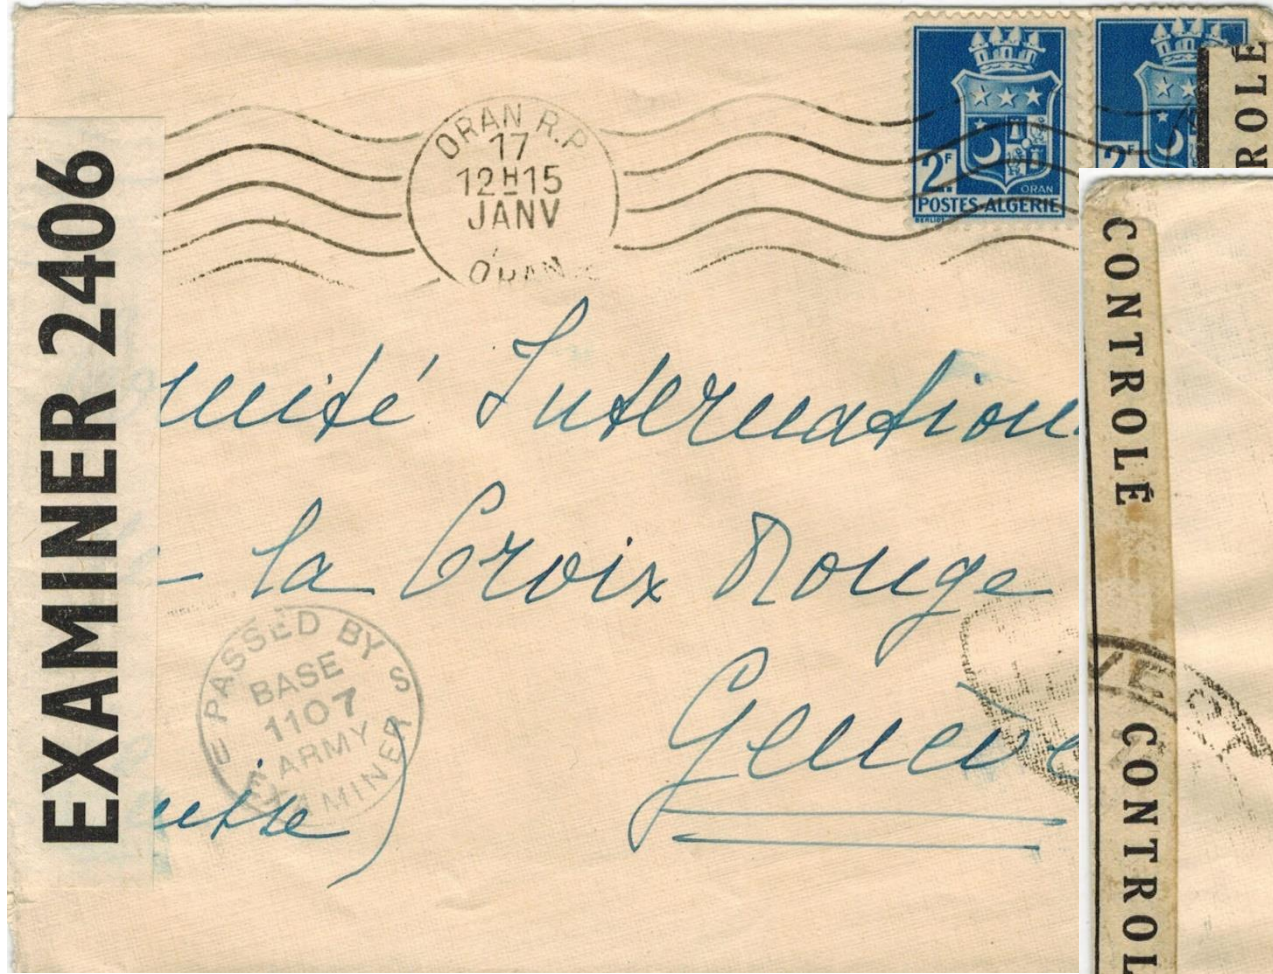 EXAMINER 2406
ORAN R.P
17
12H15
JANV
ORAN
2F
ORAN
POSTES-ALGERIE
2F
ROLÉ
CONTROLÉ
CONTROL
mité Internation
- la Croix Rouge
Genève
uisse)
PASSED BY
BASE
1107
ARMY
EXAMINER